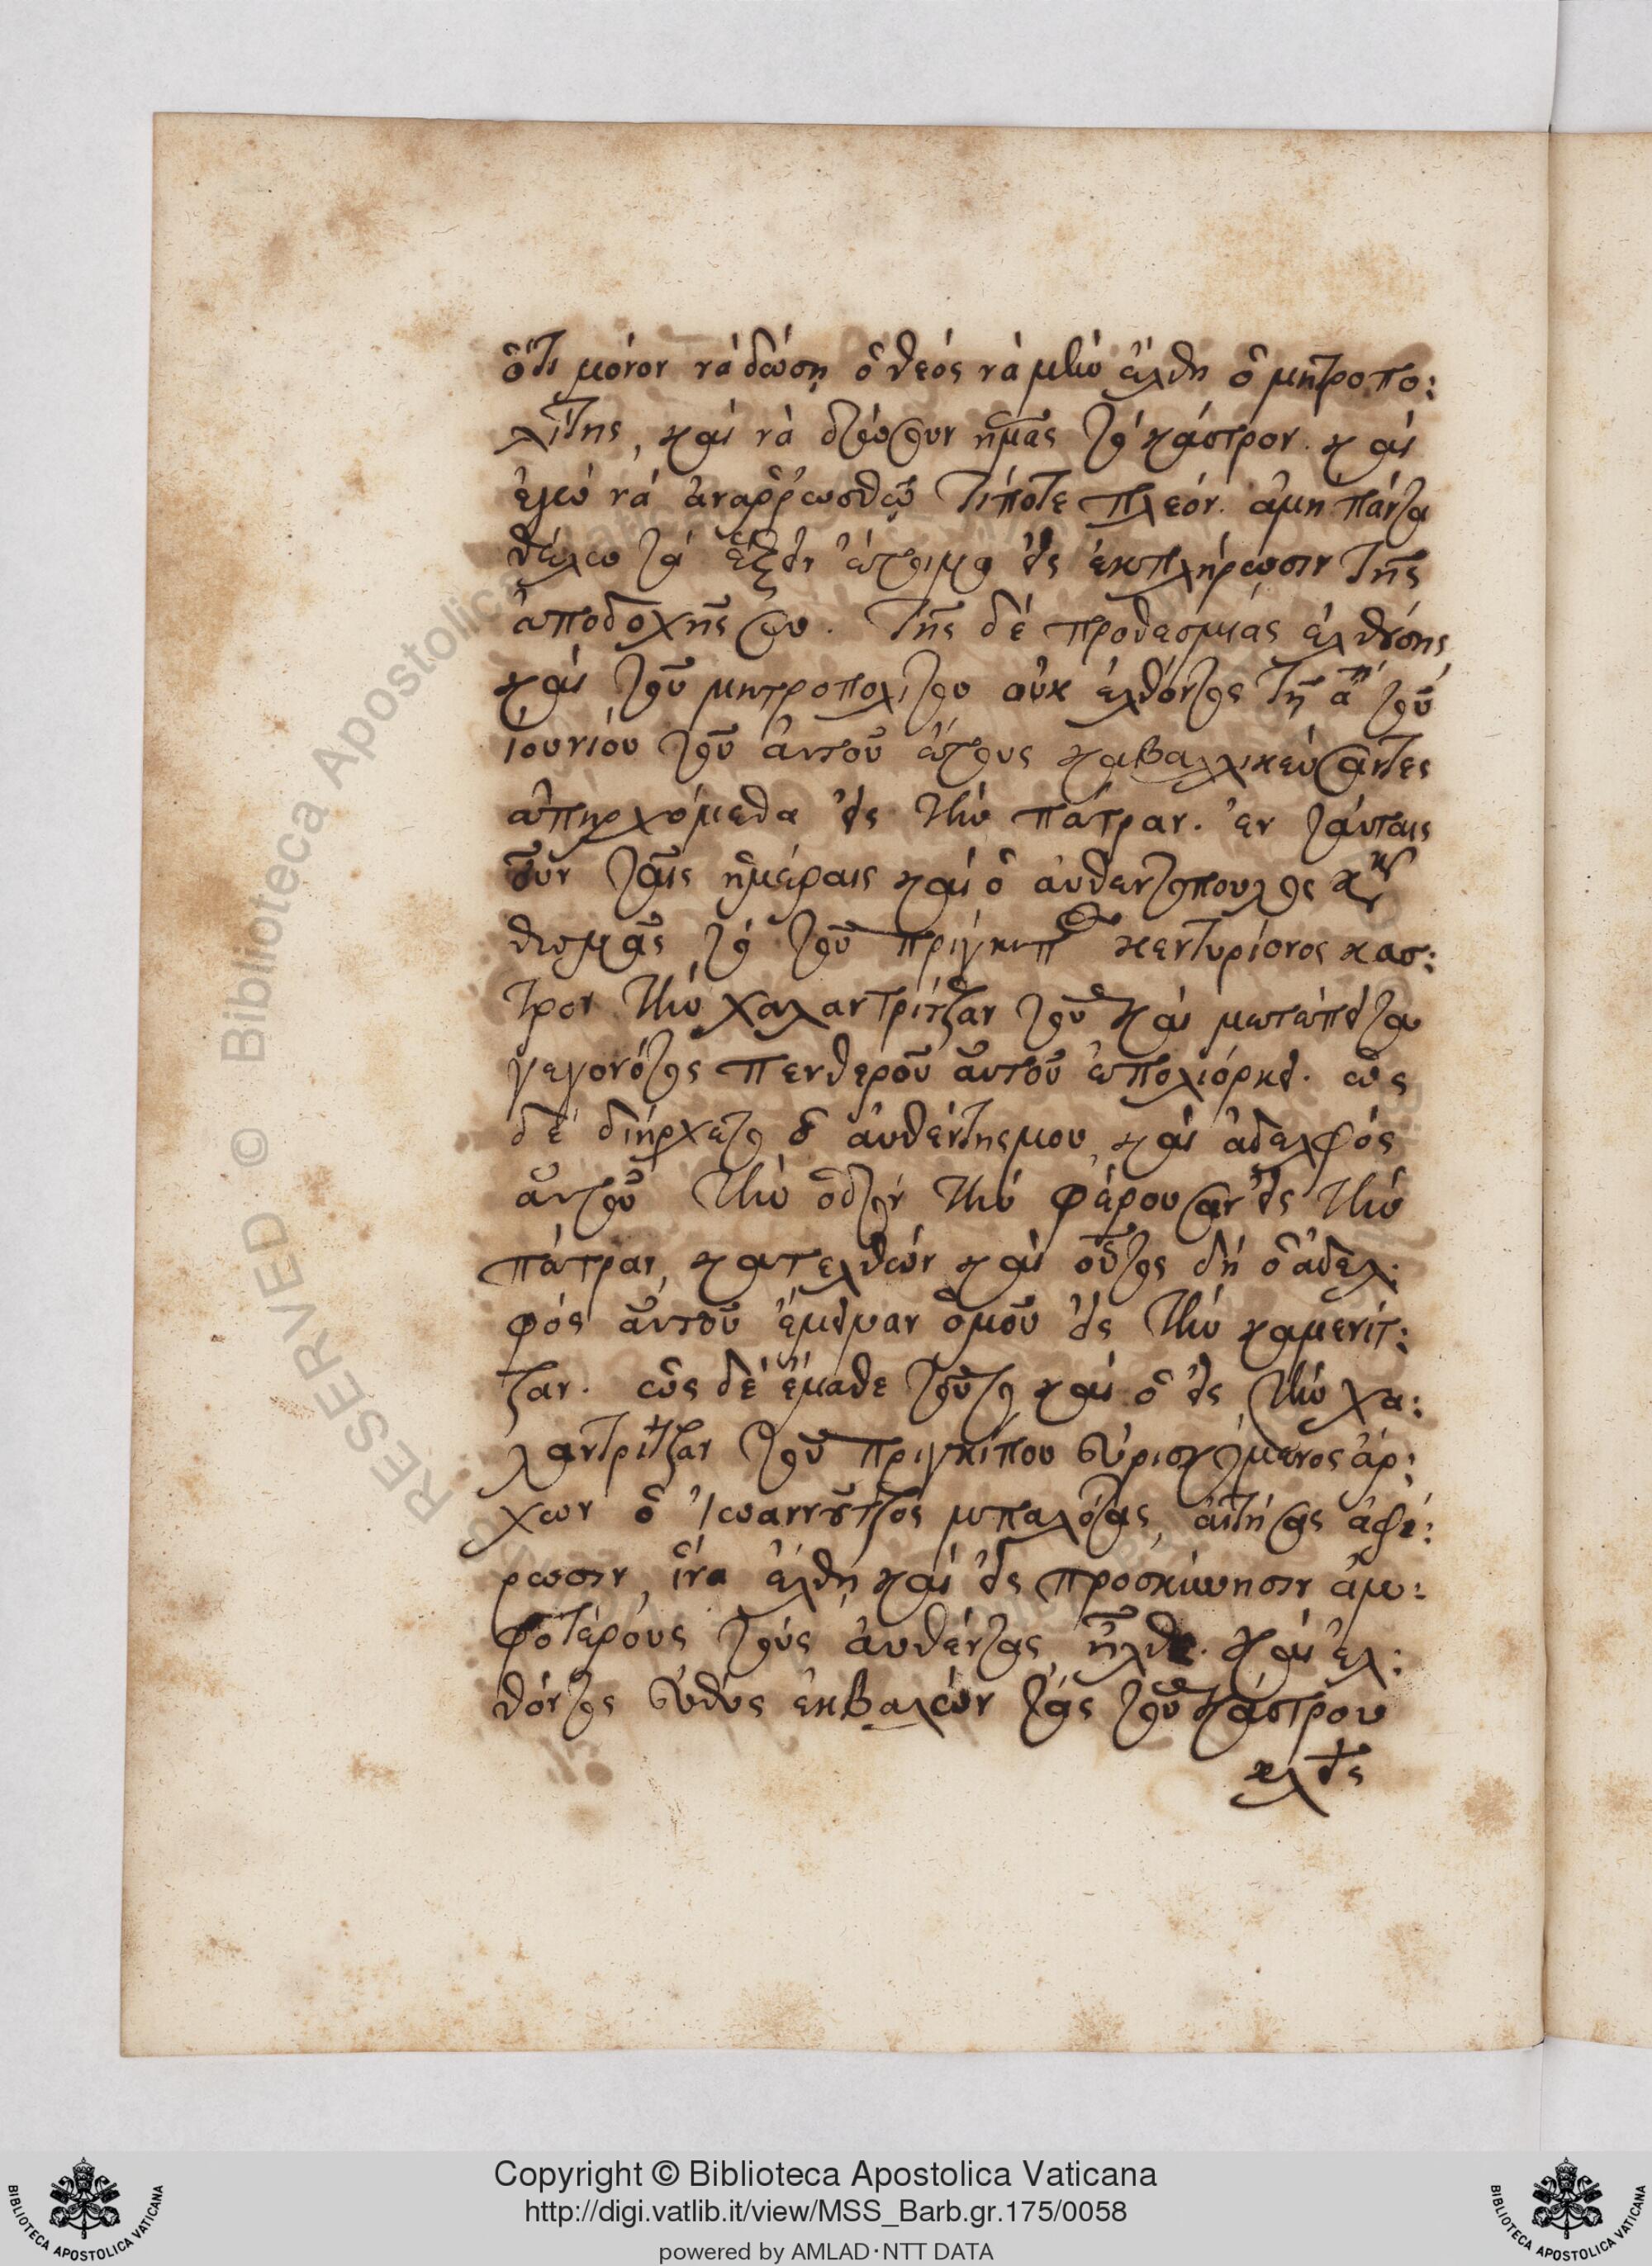 ὅτι μόνον νὰ δώσῃ ὁ θεός νὰ μὴν ἔλθῃ ὁ μητροπο:
λίτης, καὶ νὰ δώσουν ἡμᾶς τὸ κάστρον. καὶ
ἐγὼ νὰ ἀναῤῥωσθῶ τίποτε πλεόν. ἀμὴ πάντα
θέλω τὰ ἔξει ἕτοιμα εἰς ἐκπλήρωσιν τῆς
ἀποδοχῆς σου. τῆς δὲ προθεσμίας ἐλθούσης
καὶ τοῦ μητροπολίτου οὐκ ἐλθόντος τῇ α^η τοῦ
ἰουνίου τοῦ αὐτοῦ ἔτους καβαλλικεύσαντες
ἀπηρχόμεθα εἰς τὴν πάτραν. ἐν ταύταις
οὖν ταῖς ἡμέραις καὶ ὁ αὐθεντόπουλος κυρ
θωμᾶς τὸ τοῦ πρίγκιπος κεντυρίονος κάσ:
τρον τὴν χαλαντρίτζαν τοῦ καὶ μετέπειτα
γεγονότος πενθεροῦ αὐτοῦ ἐπολιόρκει. ὡς
δὲ διήρχετο ὁ αὐθέντης μου, καὶ ἀδελφός
αὐτοῦ τὴν ὁδὸν τὴν φέρουσαν εἰς τὴν
πάτραν, κατελθών καὶ οὗτος δὴ ὁ ἀδελ:
φός αὐτοῦ ἔμειναν ὁμοῦ εἰς τὴν καμενίτ:
ζαν. ὡς δὲ ἔμαθε τοῦτο καὶ ὁ εἰς τὴν χα:
λαντρίτζαν τοῦ πριγκίπου εὑρισκόμενος ἄρ:
χων ὁ Ἰωαννούτζος μπαλότας, αἰτήσας ἀφι:
ρωσιν, ἵνα ἔλθῃ καὶ εἰς προσκύνησιν ἀμ:
φοτέρους τοὺς αὐθέντας, ἦλθε. καὶ ἐλ:
θόντος εὐθὺς ἐκβαλὼν τὰς τοῦ κάστρου
κλεῖς
Copyright © Biblioteca Apostolica Vaticana
http://digi.vatlib.it/view/MSS_Barb.gr.175/0058
powered by AMLAD·NTT DATA
RESERVED © Biblioteca Apostolica
BIBLIOTECA APOSTOLICA VATICANA
BIBLIOTECA APOSTOLICA VATICANA